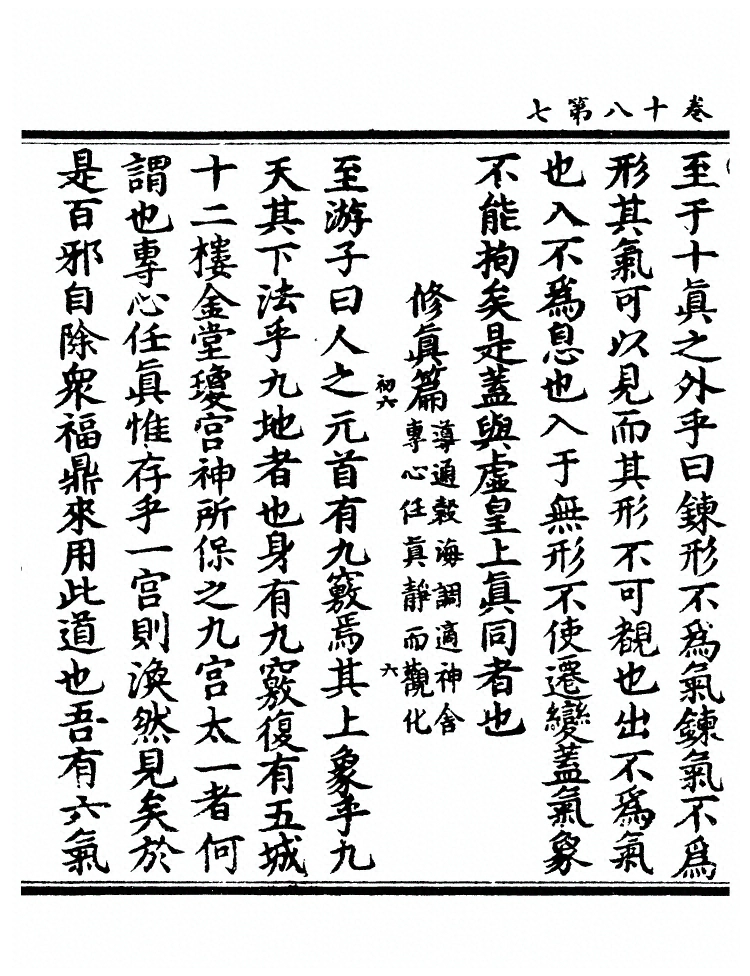 卷十八第七
至于十眞之外乎曰鍊形不爲氣鍊氣不爲
形其氣可以見而其形不可覩也出不爲氣
也入不爲息也入于無形不使遷變蓋氣象
不能拘矣是蓋與虛皇上眞同者也
修眞篇
導通穀海調適神舍
專心任眞靜而觀化
初六
六
至游子曰人之元首有九竅焉其上象乎九
天其下法乎九地者也身有九竅復有五城
十二樓金堂瓊宮神所保之九宮太一者何
謂也專心任眞惟存乎一宮則渙然見矣於
是百邪自除衆福鼎來用此道也吾有六氣